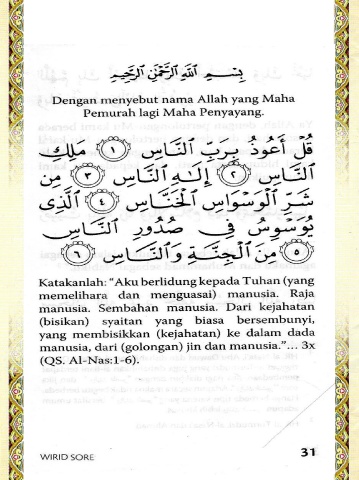 بِسْمِ اللَّهِ الرَّحْمَٰنِ الرَّحِيمِ
Dengan menyebut nama Allah yang Maha
Pemurah lagi Maha Penyayang.
قُلْ أَعُوذُ بِرَبِّ النَّاسِ ﴿١﴾ مَلِكِ
النَّاسِ ﴿٢﴾ إِلَٰهِ النَّاسِ ﴿٣﴾ مِن
شَرِّ الْوَسْوَاسِ الْخَنَّاسِ ﴿٤﴾ الَّذِي
يُوَسْوِسُ فِي صُدُورِ النَّاسِ
﴿٥﴾ مِنَ الْجِنَّةِ وَالنَّاسِ ﴿٦﴾
Katakanlah: “Aku berlidung kepada Tuhan (yang
memelihara dan menguasai) manusia. Raja
manusia. Sembahan manusia. Dari kejahatan
(bisikan) syaitan yang biasa bersembunyi,
yang membisikkan (kejahatan) ke dalam dada
manusia, dari (golongan) jin dan manusia.”... 3x
(QS. Al-Nas:1-6).
WIRID SORE 31